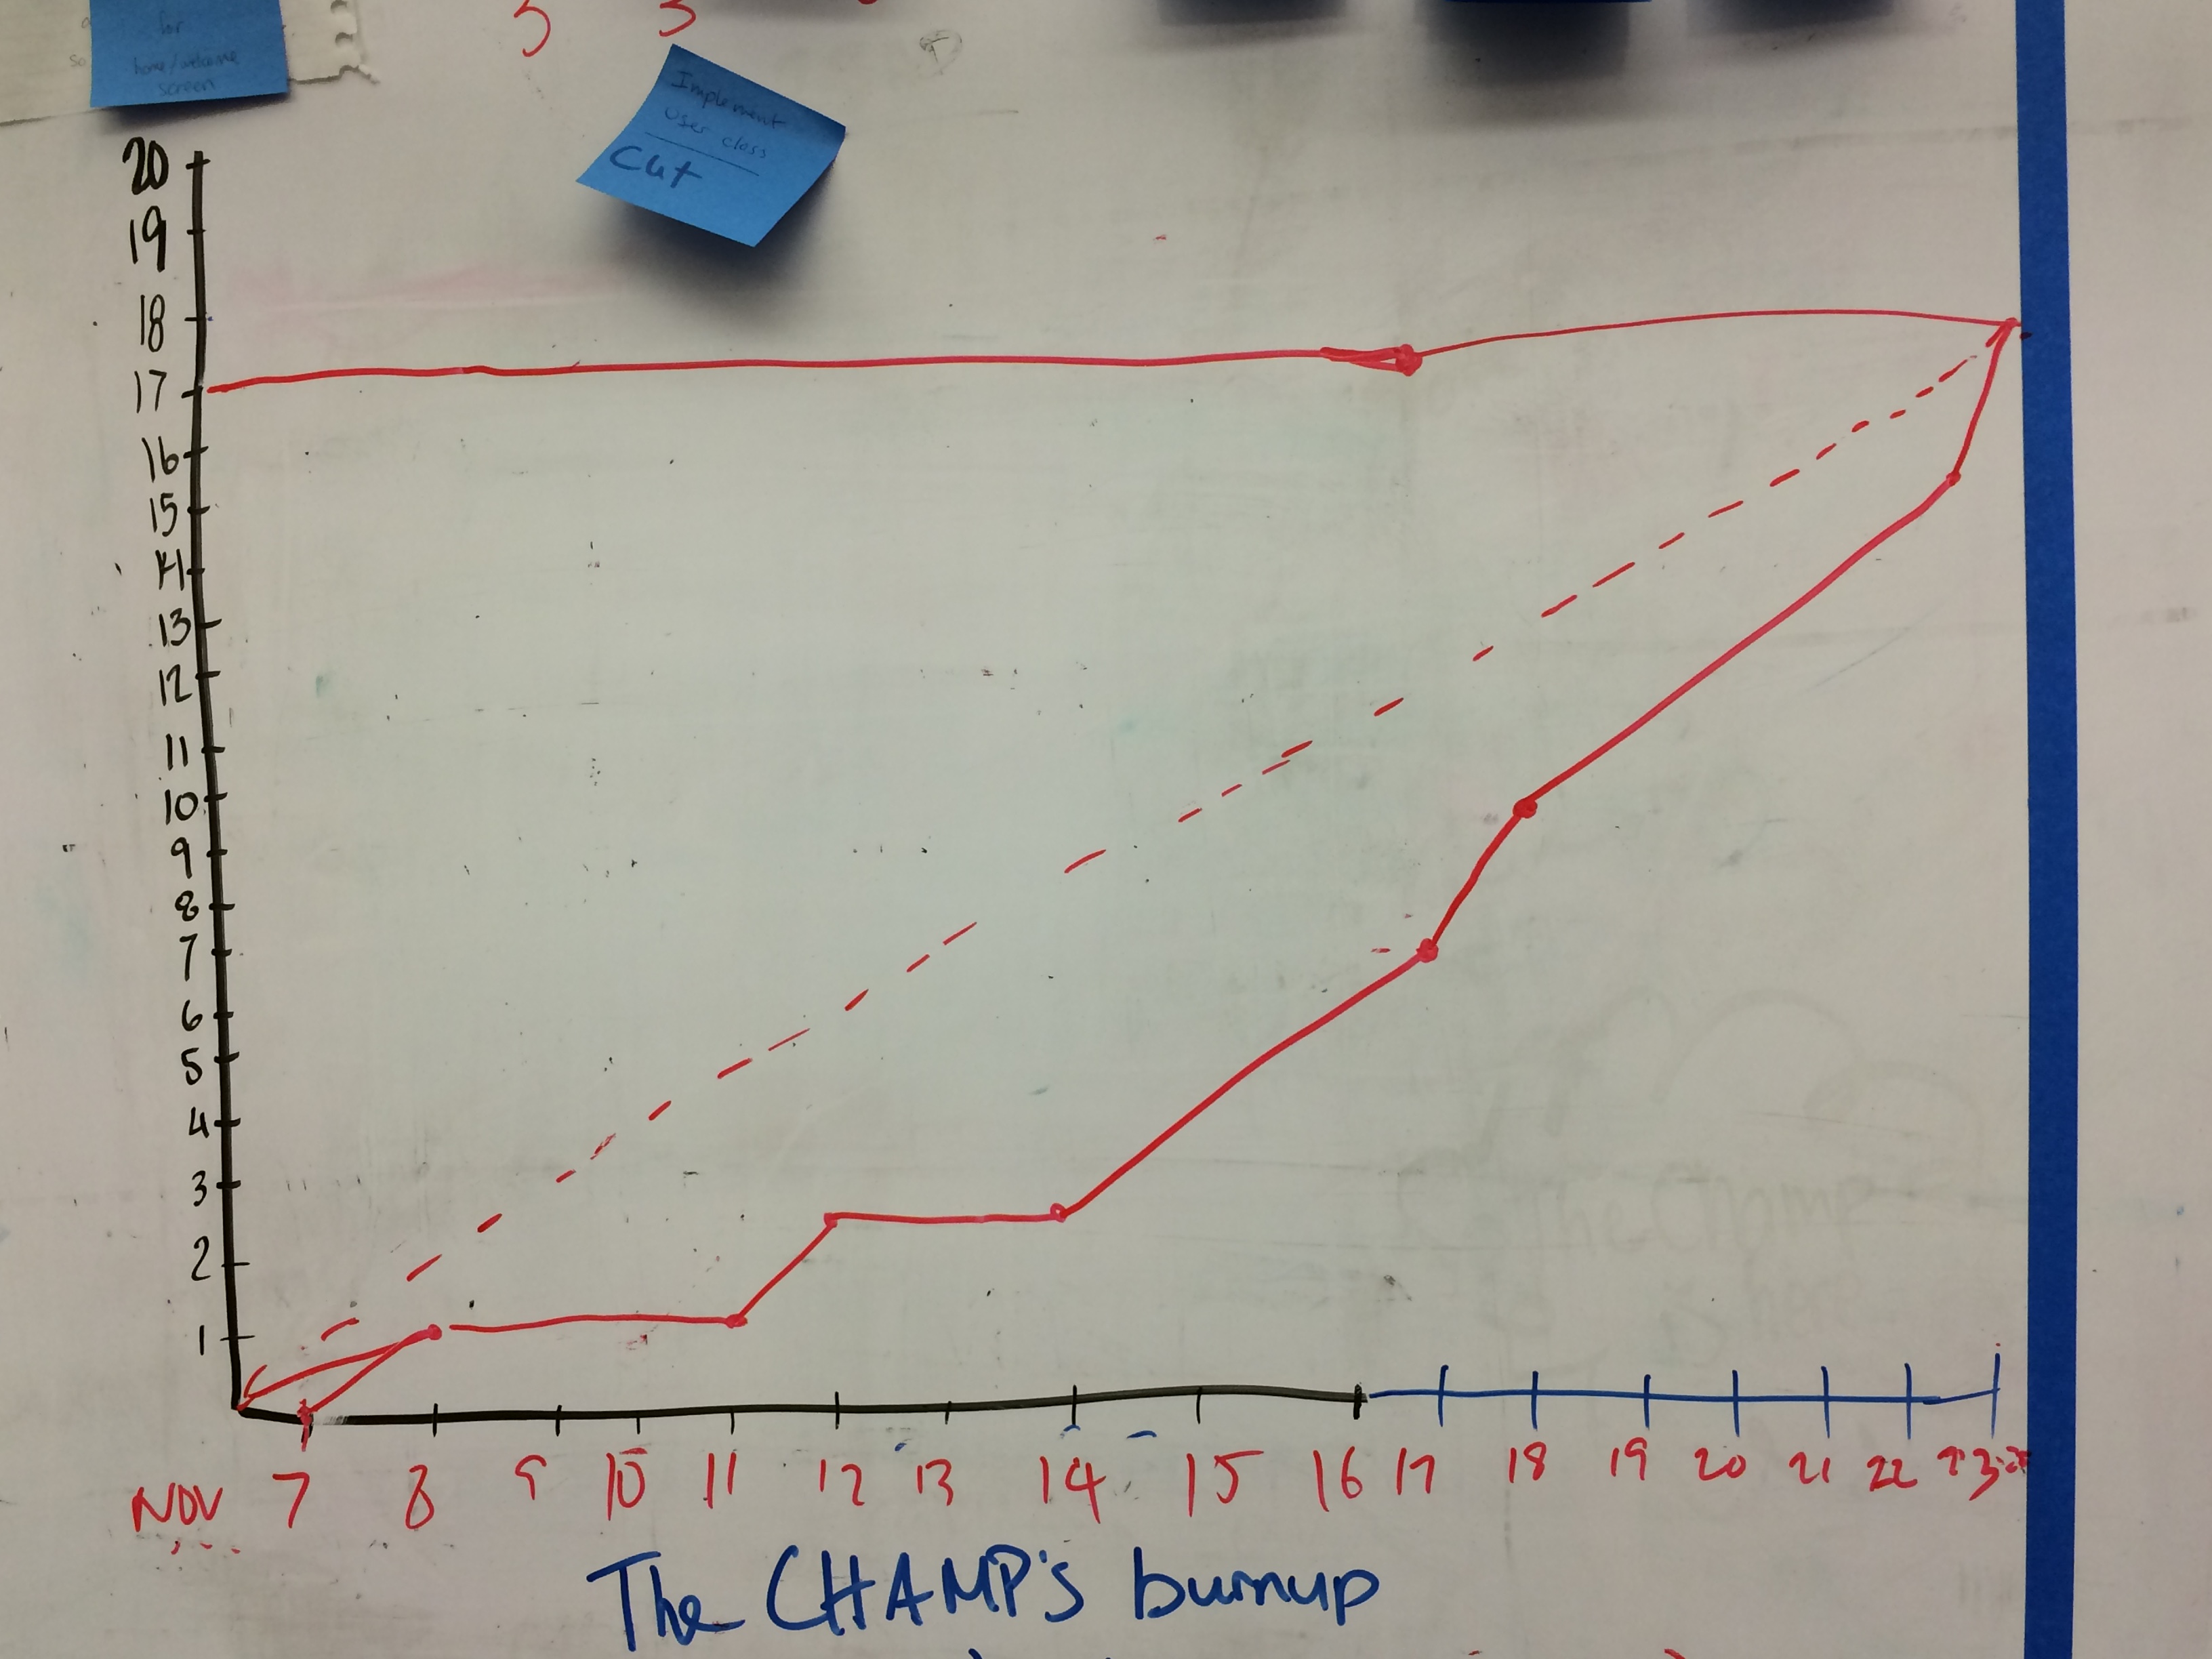 for
home/welcome
screen
Implement
User class
Cut
20
19
18
17
16
15
14
13
12
11
10
9
8
7
6
5
4
3
2
1
NOV 7 8 9 10 11 12 13 14 15 16 17 18 19 20 21 22 23
The CHAMP's burnup